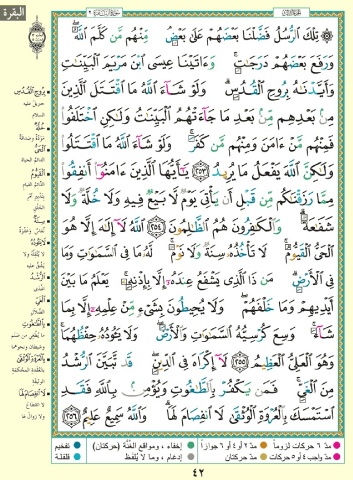 البقرة
تِلْكَ ٱلرُّسُلُ فَضَّلْنَا بَعْضَهُمْ عَلَىٰ بَعْضٍ مِّنْهُم مَّن كَلَّمَ ٱللَّهُ
وَرَفَعَ بَعْضَهُمْ دَرَجَٰتٍ وَءَاتَيْنَا عِيسَى ٱبْنَ مَرْيَمَ ٱلْبَيِّنَٰتِ
وَأَيَّدْنَٰهُ بِرُوحِ ٱلْقُدُسِ وَلَوْ شَآءَ ٱللَّهُ مَا ٱقْتَتَلَ ٱلَّذِينَ
مِنۢ بَعْدِهِم مِّنۢ بَعْدِ مَا جَآءَتْهُمُ ٱلْبَيِّنَٰتُ وَلَٰكِنِ ٱخْتَلَفُوا۟
فَمِنْهُم مَّنْ ءَامَنَ وَمِنْهُم مَّن كَفَرَ وَلَوْ شَآءَ ٱللَّهُ مَا ٱقْتَتَلُوا۟
وَلَٰكِنَّ ٱللَّهَ يَفْعَلُ مَا يُرِيدُ ٢٥٣ يَٰٓأَيُّهَا ٱلَّذِينَ ءَامَنُوٓا۟ أَنفِقُوا۟
مِمَّا رَزَقْنَٰكُم مِّن قَبْلِ أَن يَأْتِىَ يَوْمٌ لَّا بَيْعٌ فِيهِ وَلَا خُلَّةٌ وَلَا
شَفَٰعَةٌ وَٱلْكَٰفِرُونَ هُمُ ٱلظَّٰلِمُونَ ٢٥٤ ٱللَّهُ لَآ إِلَٰهَ إِلَّا هُوَ
ٱلْحَىُّ ٱلْقَيُّومُ لَا تَأْخُذُهُۥ سِنَةٌ وَلَا نَوْمٌ لَّهُۥ مَا فِى ٱلسَّمَٰوَٰتِ وَمَا
فِى ٱلْأَرْضِ مَن ذَا ٱلَّذِى يَشْفَعُ عِندَهُۥٓ إِلَّا بِإِذْنِهِۦ يَعْلَمُ مَا بَيْنَ
أَيْدِيهِمْ وَمَا خَلْفَهُمْ وَلَا يُحِيطُونَ بِشَىْءٍ مِّنْ عِلْمِهِۦٓ إِلَّا بِمَا
شَآءَ وَسِعَ كُرْسِيُّهُ ٱلسَّمَٰوَٰتِ وَٱلْأَرْضَ وَلَا يَـُٔودُهُۥ حِفْظُهُمَا
وَهُوَ ٱلْعَلِىُّ ٱلْعَظِيمُ ٢٥٥ لَآ إِكْرَاهَ فِى ٱلدِّينِ قَد تَّبَيَّنَ ٱلرُّشْدُ
مِنَ ٱلْغَىِّ فَمَن يَكْفُرْ بِٱلطَّٰغُوتِ وَيُؤْمِنۢ بِٱللَّهِ فَقَدِ
ٱسْتَمْسَكَ بِٱلْعُرْوَةِ ٱلْوُثْقَىٰ لَا ٱنفِصَامَ لَهَا وَٱللَّهُ سَمِيعٌ عَلِيمٌ ٢٥٦
بِرُوحِ الْقُدُسِ
جبريل عليه
السلام
خُلَّةٌ
مودّة وصداقة
الْحَيُّ
الدائم الحياة
الْقَيُّومُ
الدائم القيام
سِنَةٌ
لَا يَؤُودُهُ
الرُّشْدُ
الْغَيِّ
الضلال
بِالطَّاغُوتِ
بِالْعُرْوَةِ الْوُثْقَى
لَا انْفِصَامَ لَهَا
مدّ ٦ حركات لزوماً
مدّ ٢ أو ٤ أو ٦ جوازاً
إخفاء، ومواقع الغُنَّة (حركتان)
تفخيم
مدّ واجب ٤ أو ٥ حركات
مدّ حركتان
إدغام، وما لا يُلفَظ
قلقلة
٤٢